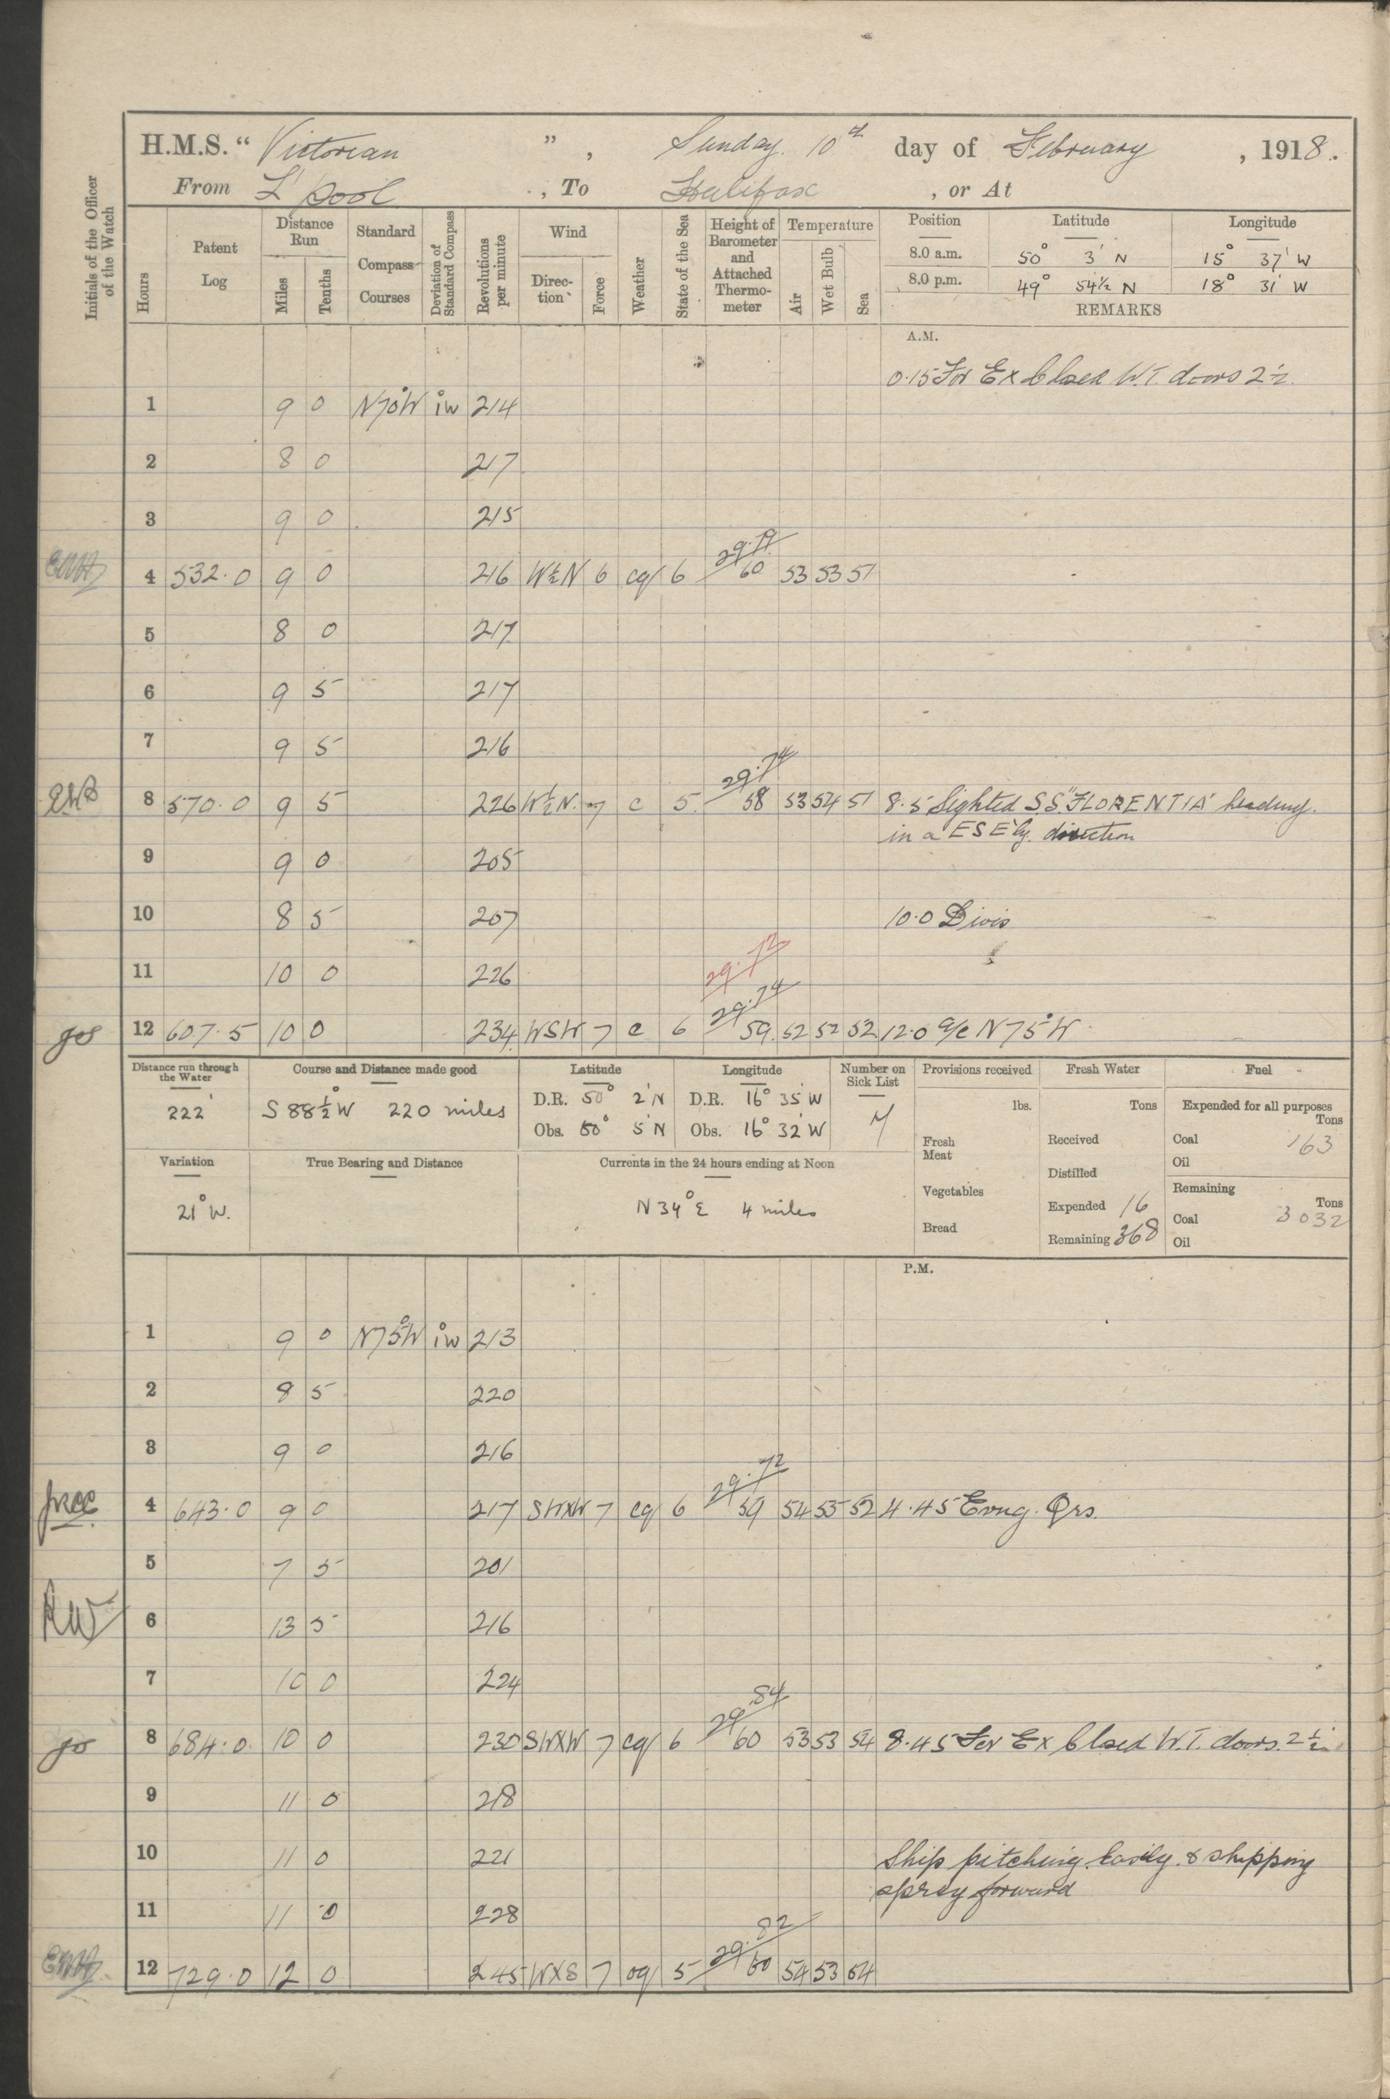 H.M.S. “ Victorian ” , Sunday 10th day of February , 1918.
From L'pool , To Halifax , or At
Initials of the Officer of the Watch
Hours
Patent Log
Distance Run
Miles
Tenths
Standard Compass Courses
Deviation of Standard Compass
Revolutions per minute
Wind
Direction
Force
Weather
State of the Sea
Height of Barometer and Attached Thermometer
Temperature
Air
Wet Bulb
Sea
Position Latitude Longitude
8.0 a.m. 50° 3' N 15° 37' W
8.0 p.m. 49° 54½ N 18° 31' W
REMARKS
A.M.
0.15 For Ex Closed W.T. doors 2½
1 9 0 N70°W 1°W 214
2 8 0 217
3 9 0 215
4 532.0 9 0 216 W½N 6 cq 6 60 53 53 51
5 8 0 217
6 9 5 217
7 9 5 216
29.74
8 570.0 9 5 226 W½N 7 c 5 58 53 54 51 8.5 Sighted S.S. "FLORENTIA" heading
in a ESE'ly direction
9 9 0 205
10 8 5 207 10.0 Divis
29.72
11 10 0 226
29.74
12 607.5 10 0 234 WSW 7 c 6 59 52 52 52 12.0 a/c N75°W
Distance run through the Water
222'
Course and Distance made good
S 88½°W 220 miles
Latitude
D.R. 50° 2' N
Obs. 50° 5' N
Longitude
D.R. 16° 35' W
Obs. 16° 32' W
Number on Sick List
Provisions received
lbs.
Fresh Meat
Vegetables
Bread
Fresh Water
Tons
Received
Distilled
Expended 16
Remaining 368
Fuel
Expended for all purposes
Tons
Coal 163
Oil
Remaining
Tons
Coal 3032
Oil
Variation
21° W.
True Bearing and Distance
Currents in the 24 hours ending at Noon
N 34° E 4 miles
P.M.
1 9 0 N75°W 1°W 213
2 8 5 220
3 9 0 216
29.72
4 643.0 9 0 217 SWXW 7 cq 6 59 54 55 52 4.45 Evng. Qrs.
5 7 5 201
RW
6 13 5 216
7 10 0 224
29.84
8 684.0 10 0 230 SWXW 7 cq 6 60 53 53 54 8.45 For Ex Closed W.T. doors. 2½
9 11 0 218
10 11 0 221 Ship pitching easily & shipping
spray forward
11 11 0 228
29.82
12 729.0 12 0 245 WXS 7 oq 5 60 54 53 54